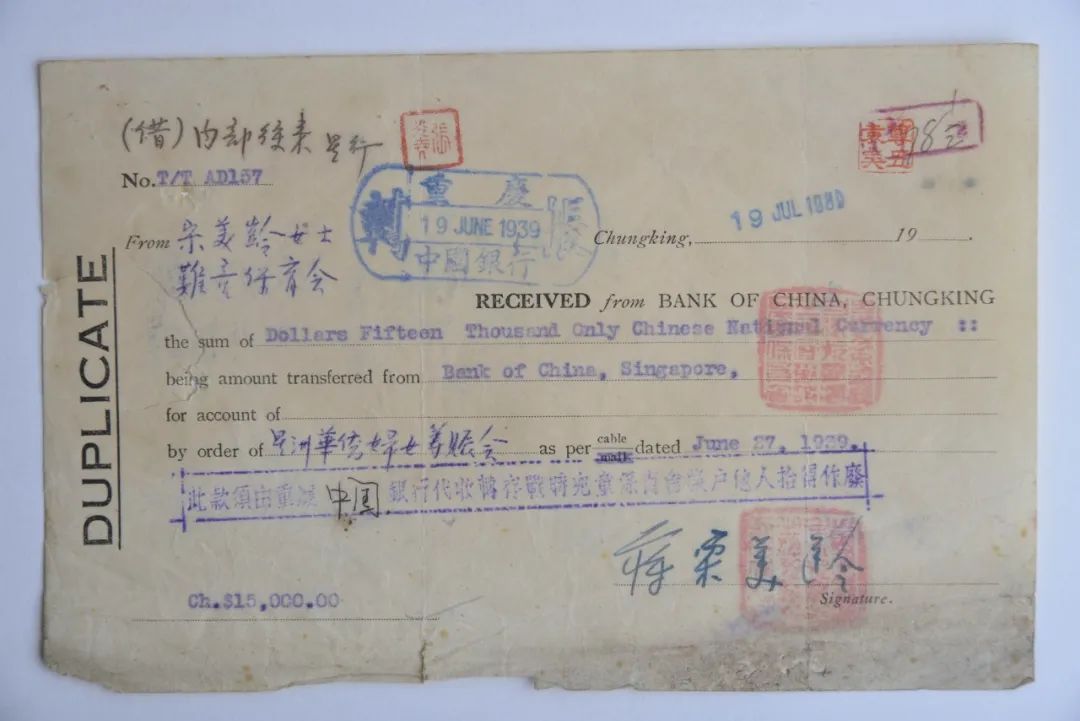 (借)內部往來 星行
No. T/T AD157
重慶
19 JUNE 1939
中國銀行
轉賬
19 JUL 1939
Chungking, 19 .
From 宋美齡女士
難童保育会
RECEIVED from BANK OF CHINA, CHUNGKING
the sum of Dollars Fifteen Thousand Only Chinese National Currency ::
being amount transferred from Bank of China, Singapore,
for account of
by order of 星洲華僑婦女籌賑会 as per cable mail dated June 27, 1939.
此款須由重慶中国銀行代收轉存戰時兒童保育會賬户他人拾得作廢
蔣宋美齡
Signature.
Ch.$15,000.00
DUPLICATE